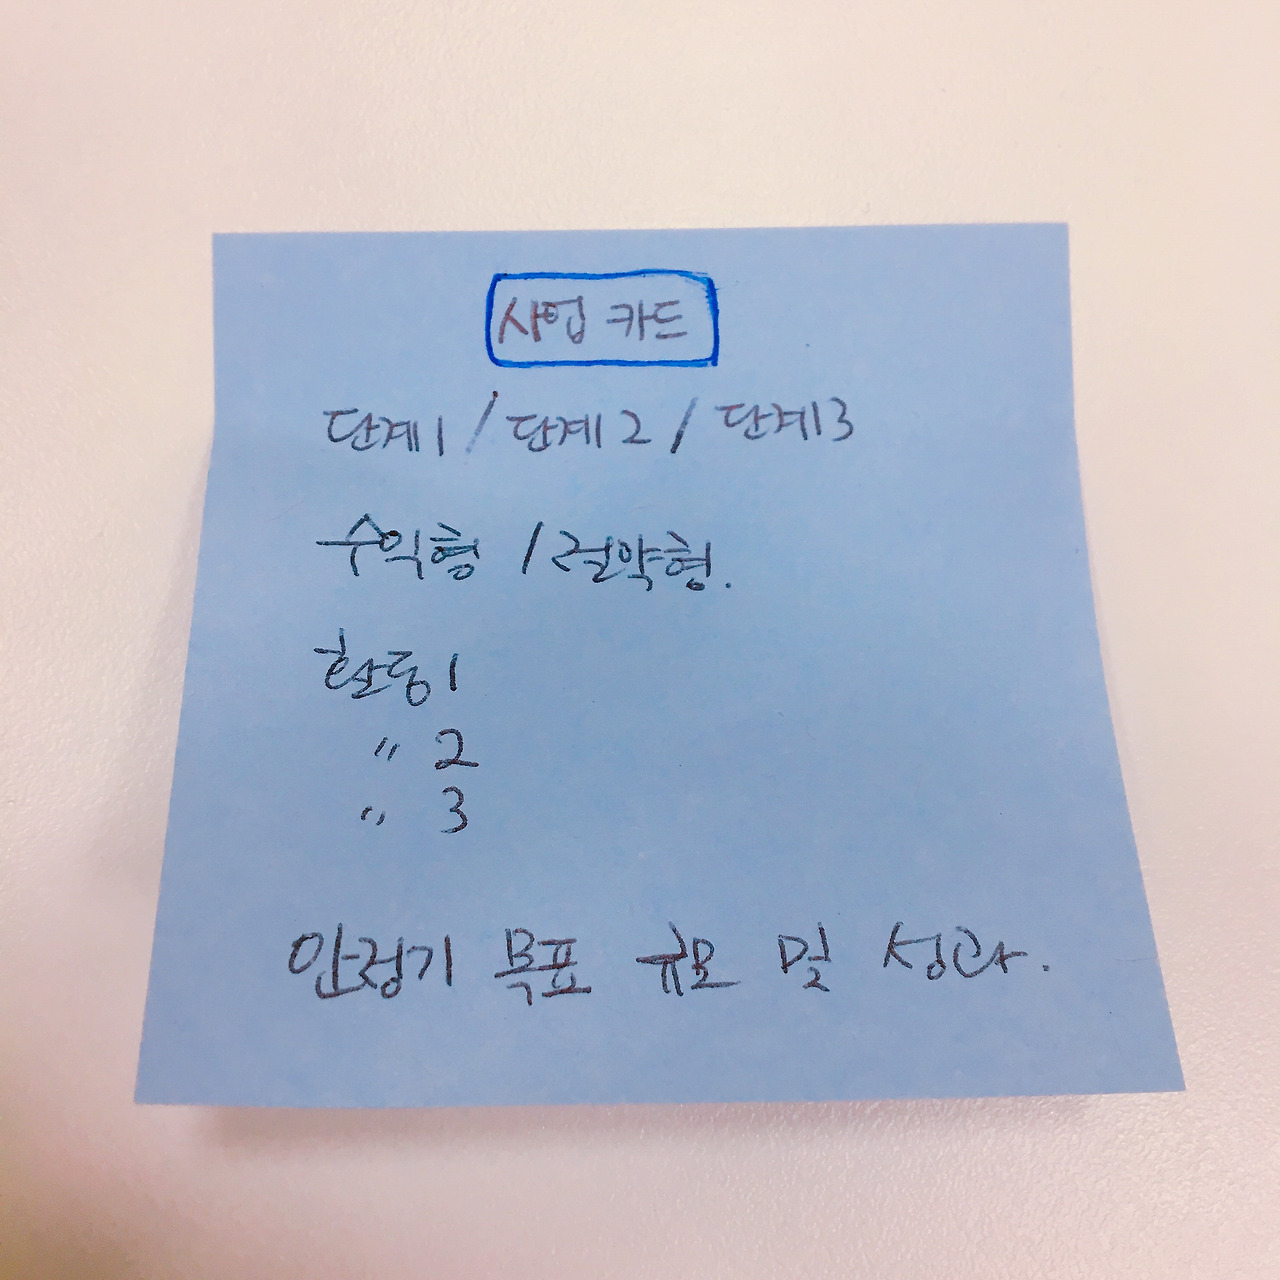 사업 카드
단계1 / 단계2 / 단계3
수익형 / 절약형.
활동1
〃 2
〃 3
안정기 목표 규모 및 성과.